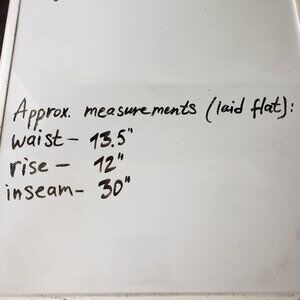 Approx. measurements (laid flat):
waist- 13.5"
rise- 12"
inseam- 30"